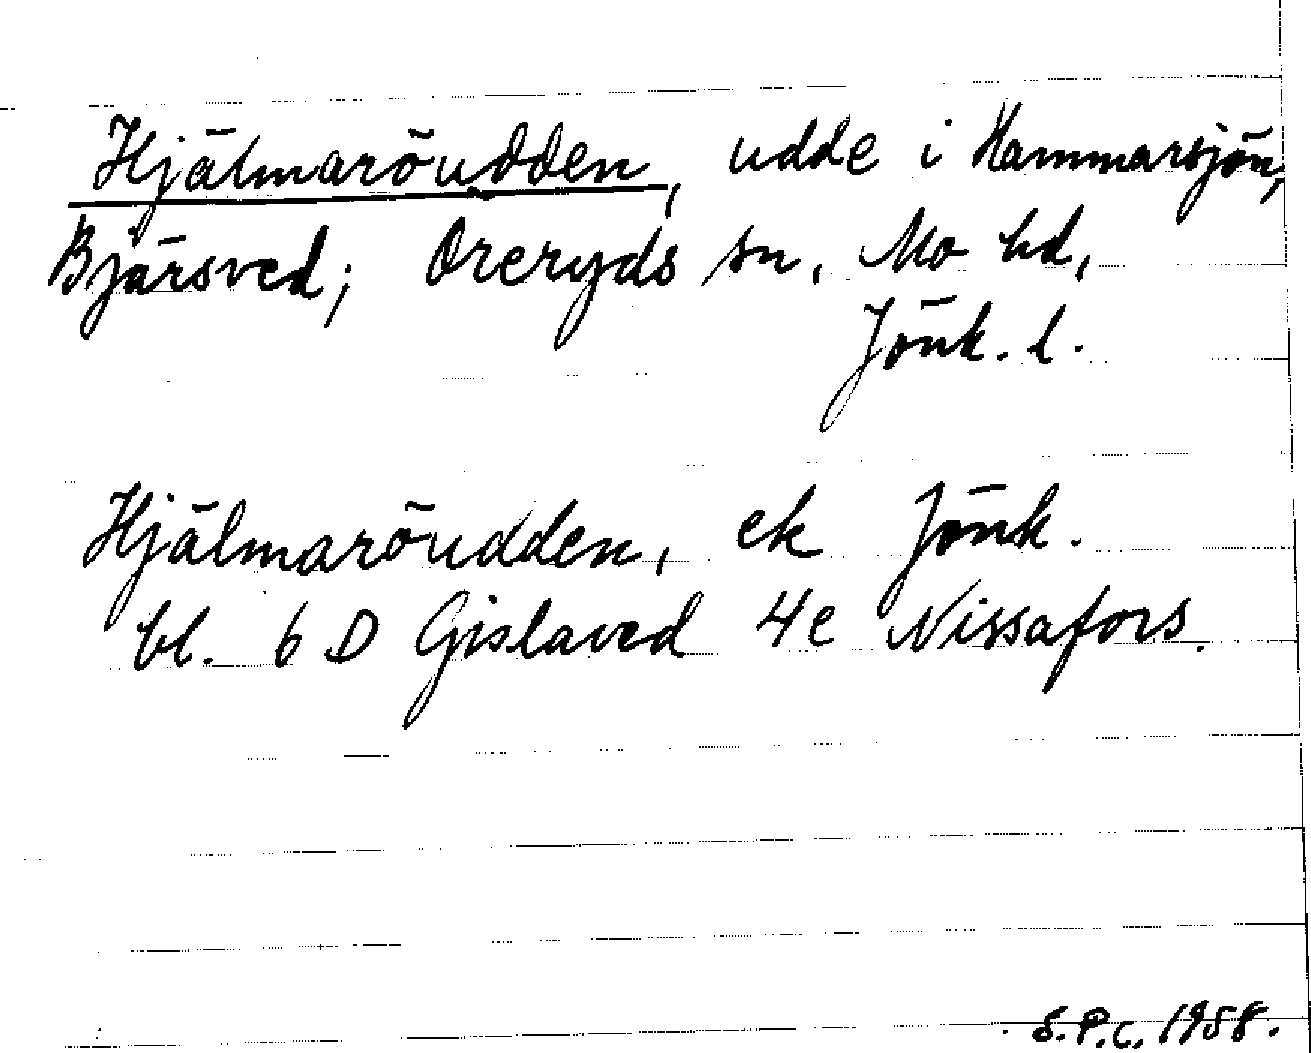 Hjälmaröudden, udde i Hammarsjön,
Bjärsved; Öreryds sn, Mo hd,
Jönk. l.
Hjälmaröudden, ek Jönk.
bl. 6 D Gislaved 4e Nissafors.
S.P.C. 1958.